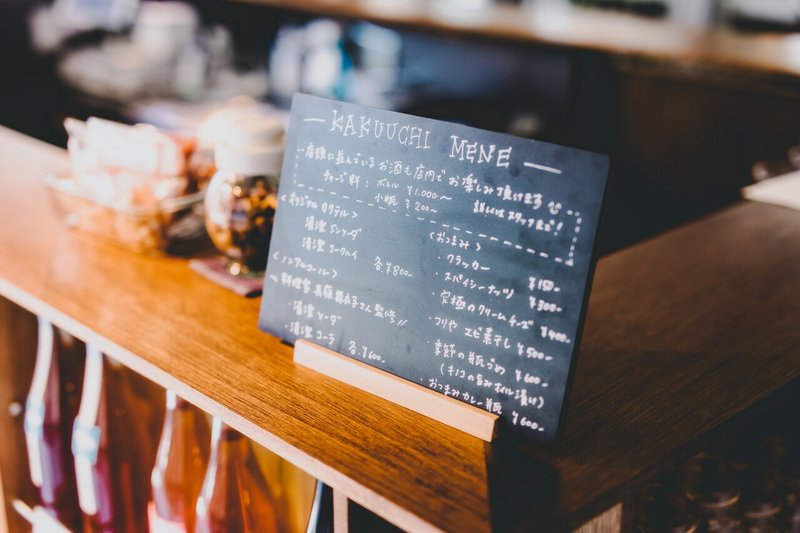 KAKUUCHI MENE
店頭に並んでいるお酒も店内でお楽しみ頂けます
チャージ料：ボトル ¥1,000〜
小瓶 ¥200〜
詳しくはスタッフまで！
＜オリジナルカクテル＞
清澄ジンソーダ
清澄コークハイ
各¥800-
＜ノンアルコール＞
料理家 さん監修！！
・清澄ソーダ
・清澄コーラ
各¥600-
＜おつまみ＞
・クラッカー ¥150-
・スパイシーナッツ ¥300-
・究極のクリームチーズ ¥400-
・つりや エビ素干し ¥500-
・季節の瓶づめ ¥600-
(キノコの旨みオイル漬け)
・おつまみカレー煎 ¥600-